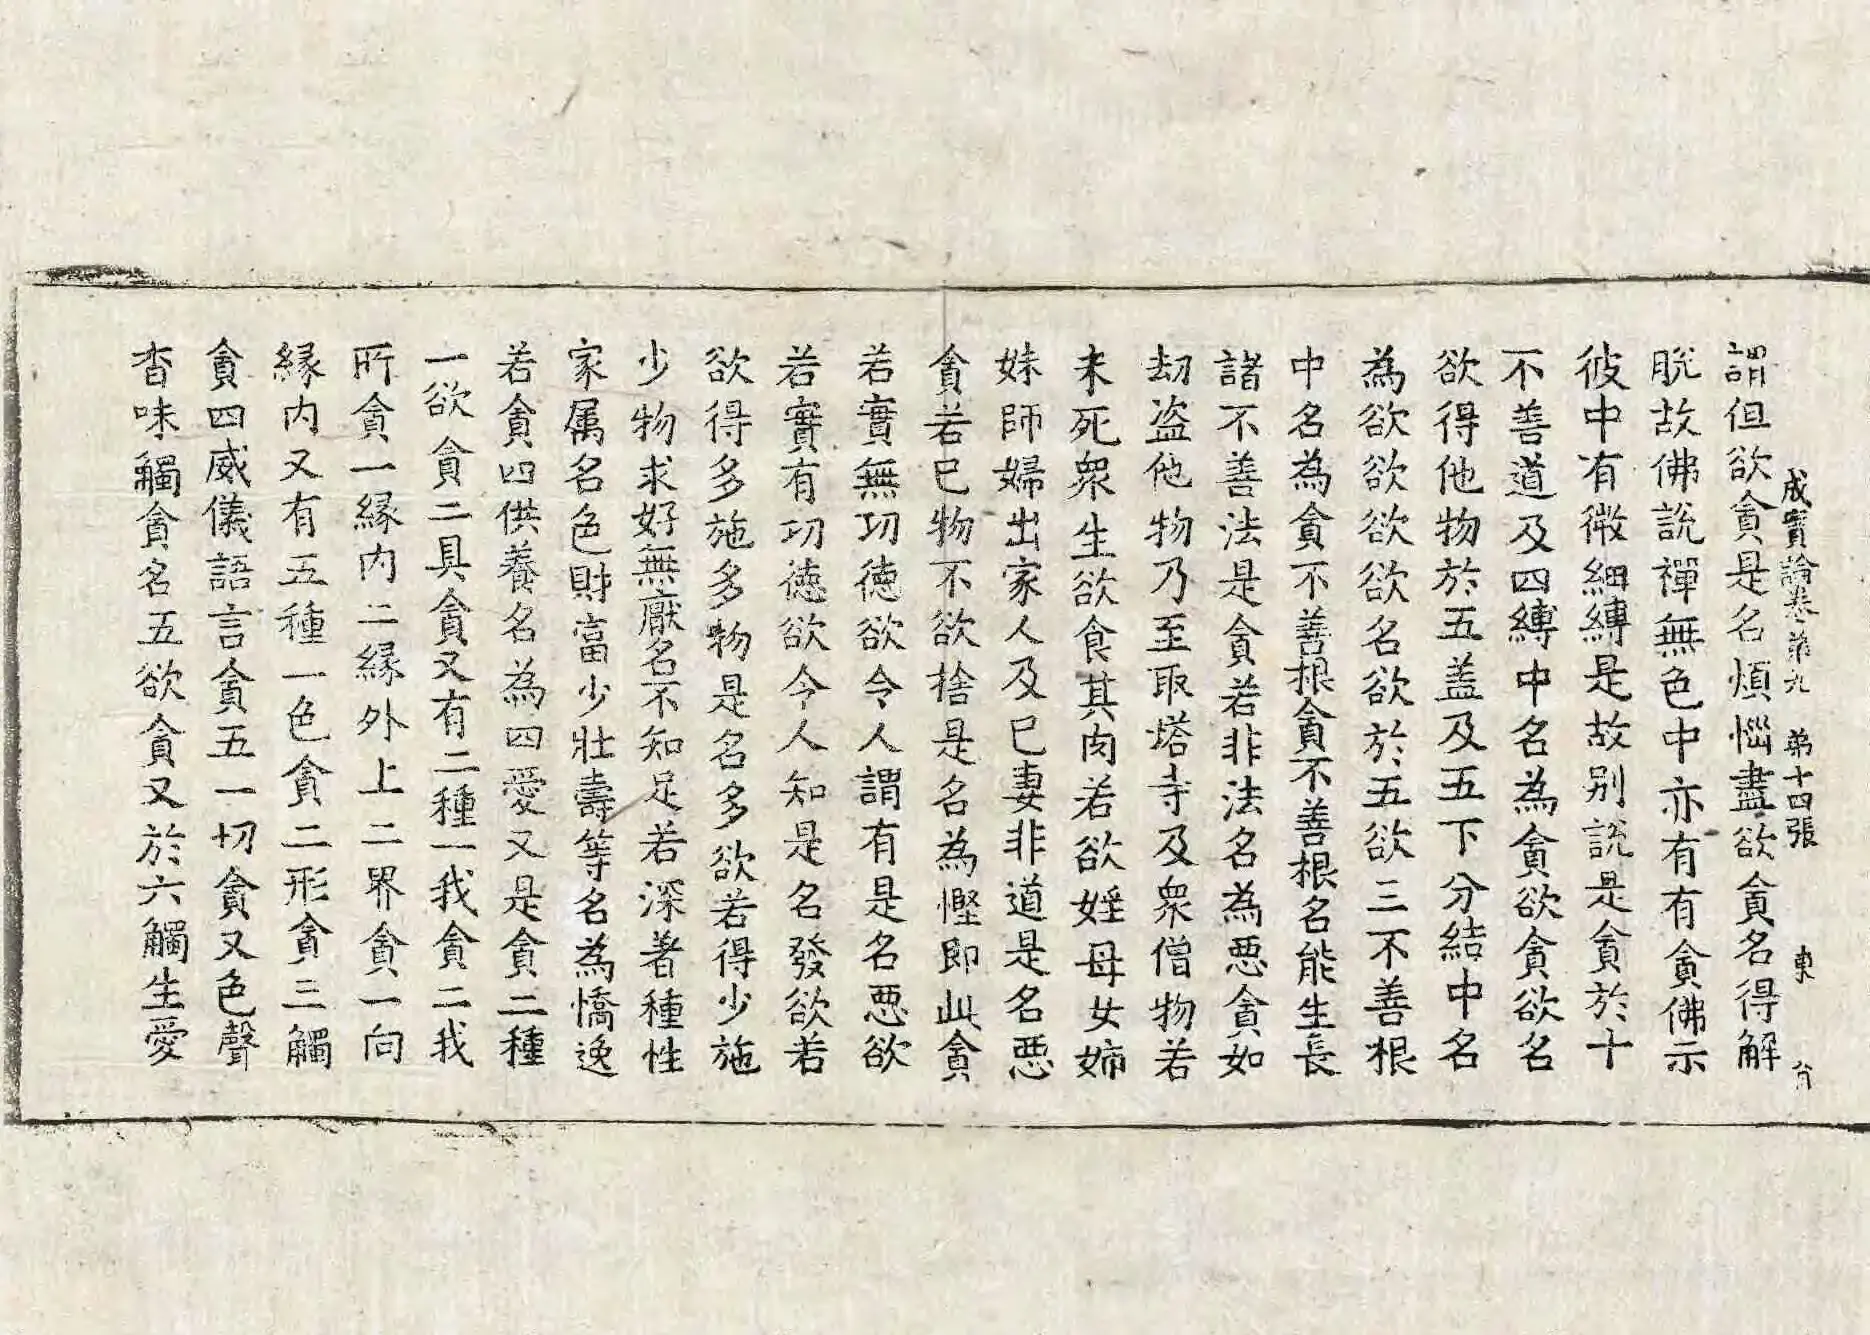 成實論卷第九　第十四張　東　㑹
謂但欲貪是名煩惱盡欲貪名得解
脫故佛說禪無色中亦有有貪佛示
彼中有微細縛是故別說是貪於十
不善道及四縛中名為貪欲貪欲名
欲得他物於五盖及五下分結中名
為欲欲欲欲名欲於五欲三不善根
中名為貪不善根貪不善根名能生長
諸不善法是貪若非法名為惡貪如
劫盜他物乃至取塔寺及衆僧物若
未死衆生欲食其肉若欲婬母女姉
妹師婦出家人及已妻非道是名惡
貪若已物不欲捨是名為慳即此貪
若實無功徳欲令人謂有是名惡欲
若實有功徳欲令人知是名發欲若
欲得多施多物是名多欲若得少施
少物求好無厭名不知足若深著種性
家属名色財富少壯壽等名為憍逸
若貪四供養名為四愛又是貪二種
一欲貪二具貪又有二種一我貪二我
所貪一緣内二緣外上二界貪一向
緣内又有五種一色貪二形貪三觸
貪四威儀語言貪五一切貪又色聲
香味觸貪名五欲貪又於六觸生愛